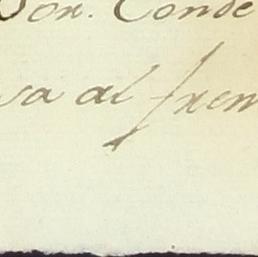 Sor. Conde
sa al fren